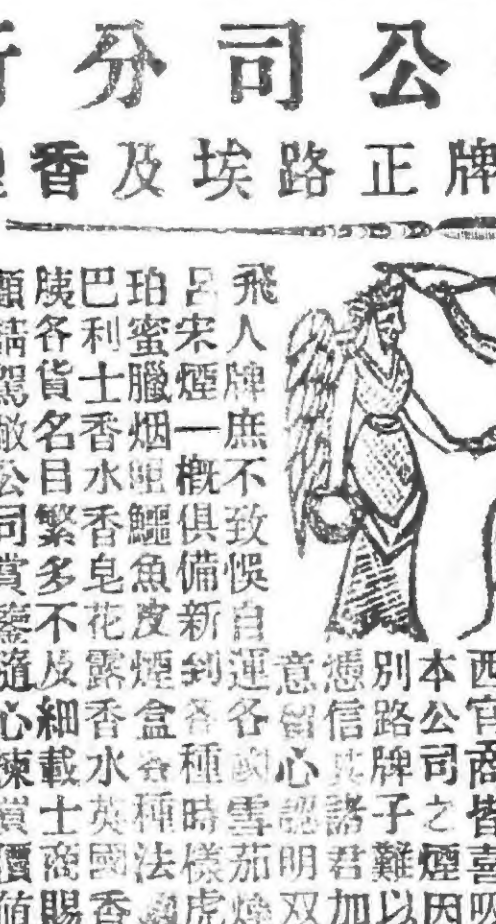 公司分
牌正路埃及香
西官商皆喜吸
本公司之煙因
別路牌子難以
憑信諸君加
意留心認明双
飛人牌庶不致悞自運各國雪茄煙
呂宋煙一概俱備新到各種時樣虎
珀蜜臘烟咀鱷魚皮煙盒各種法國
巴利士香水香皂花露香水英國香
胰各貨名目繁多不及細載士商賜
顧請駕敝公司賞鑒隨心揀價值